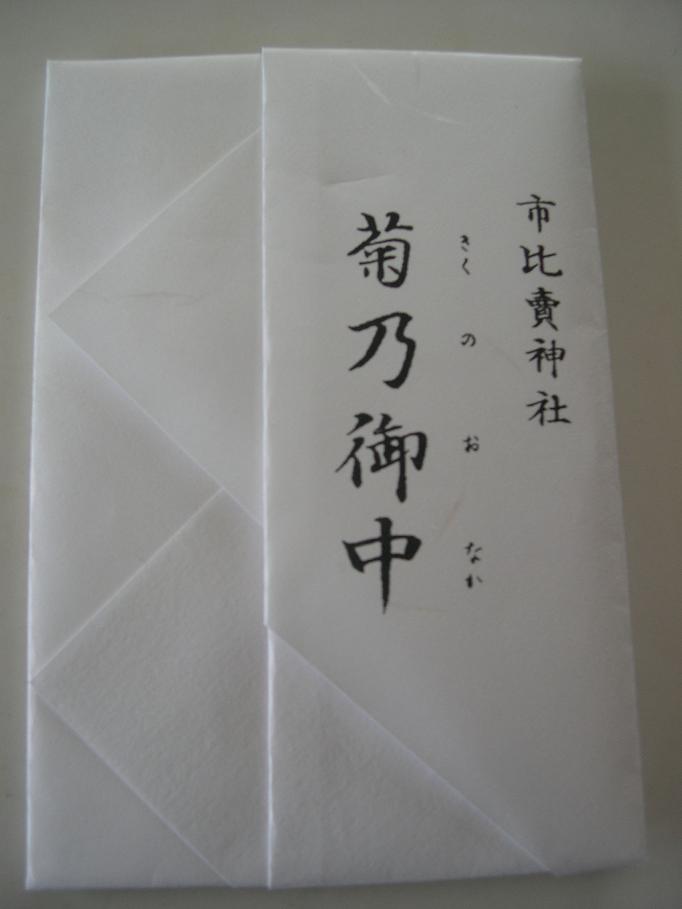 市比賣神社
きくのおなか
菊乃御中